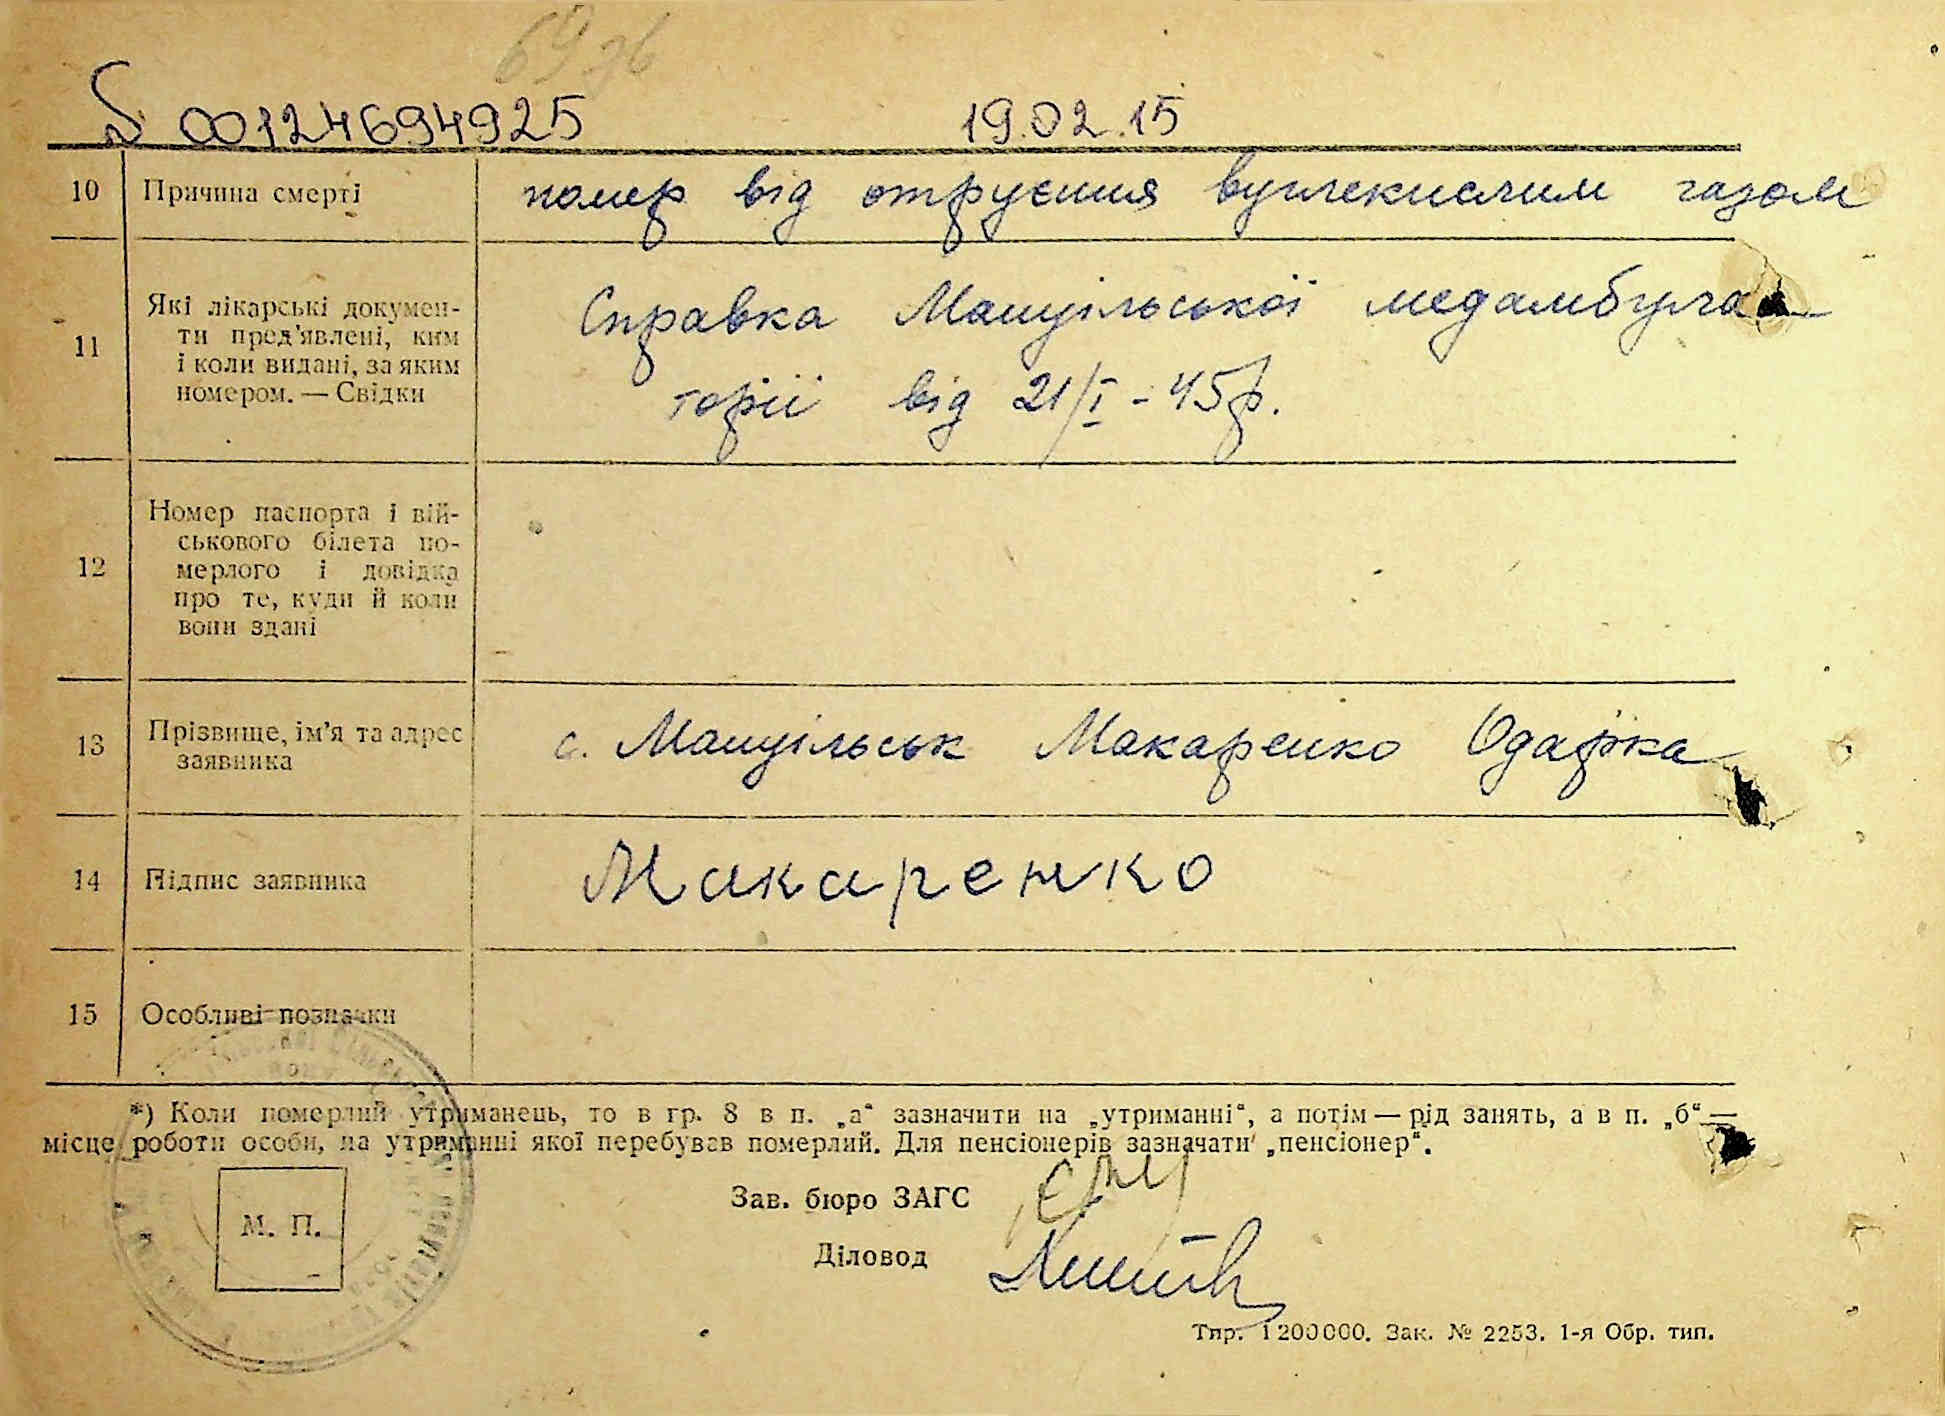 00124694925 19.02.15
10 Причина смерті помер від отруєння вуглекислим газом
11 Які лікарські докумен-
ти пред'явлені, ким
і коли видані, за яким
номером. — Свідки
Справка Мануільської медамбула
торії від 21/I - 45р.
12 Номер паспорта і вій-
ськового білета по-
мерлого і довідка
про те, куди й коли
вони здані
13 Прізвище, ім'я та адрес
заявника
с. Мануільськ Макаренко Одарка
14 Підпис заявника Макаренко
15 Особливі позначки
*) Коли померлий утриманець, то в гр. 8 в п. „а“ зазначити на „утриманні“, а потім — рід занять, а в п. „б“ —
місце роботи особи, на утриманні якої перебував померлий. Для пенсіонерів зазначати „пенсіонер“.
М. П.
Зав. бюро ЗАГС
Діловод
Тир. 1200000. Зак. № 2253. 1-я Обр. тип.